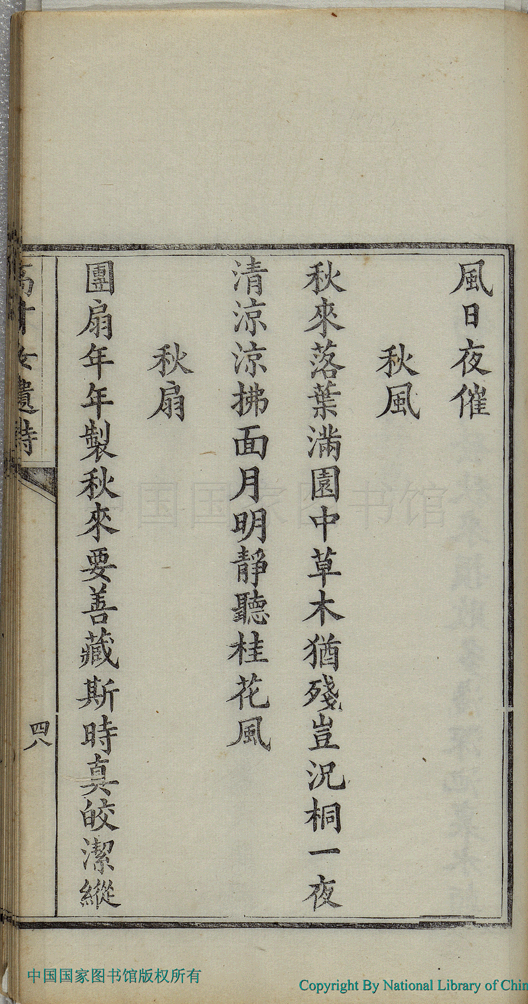 風日夜催
秋風
秋來落葉滿園中草木猶殘豈況桐一夜
清涼涼拂面月明靜聽桂花風
秋扇
團扇年年製秋來要善藏斯時真皎潔縱
遺詩
四八
中国国家图书馆
中国国家图书馆版权所有
Copyright By National Library of Chin